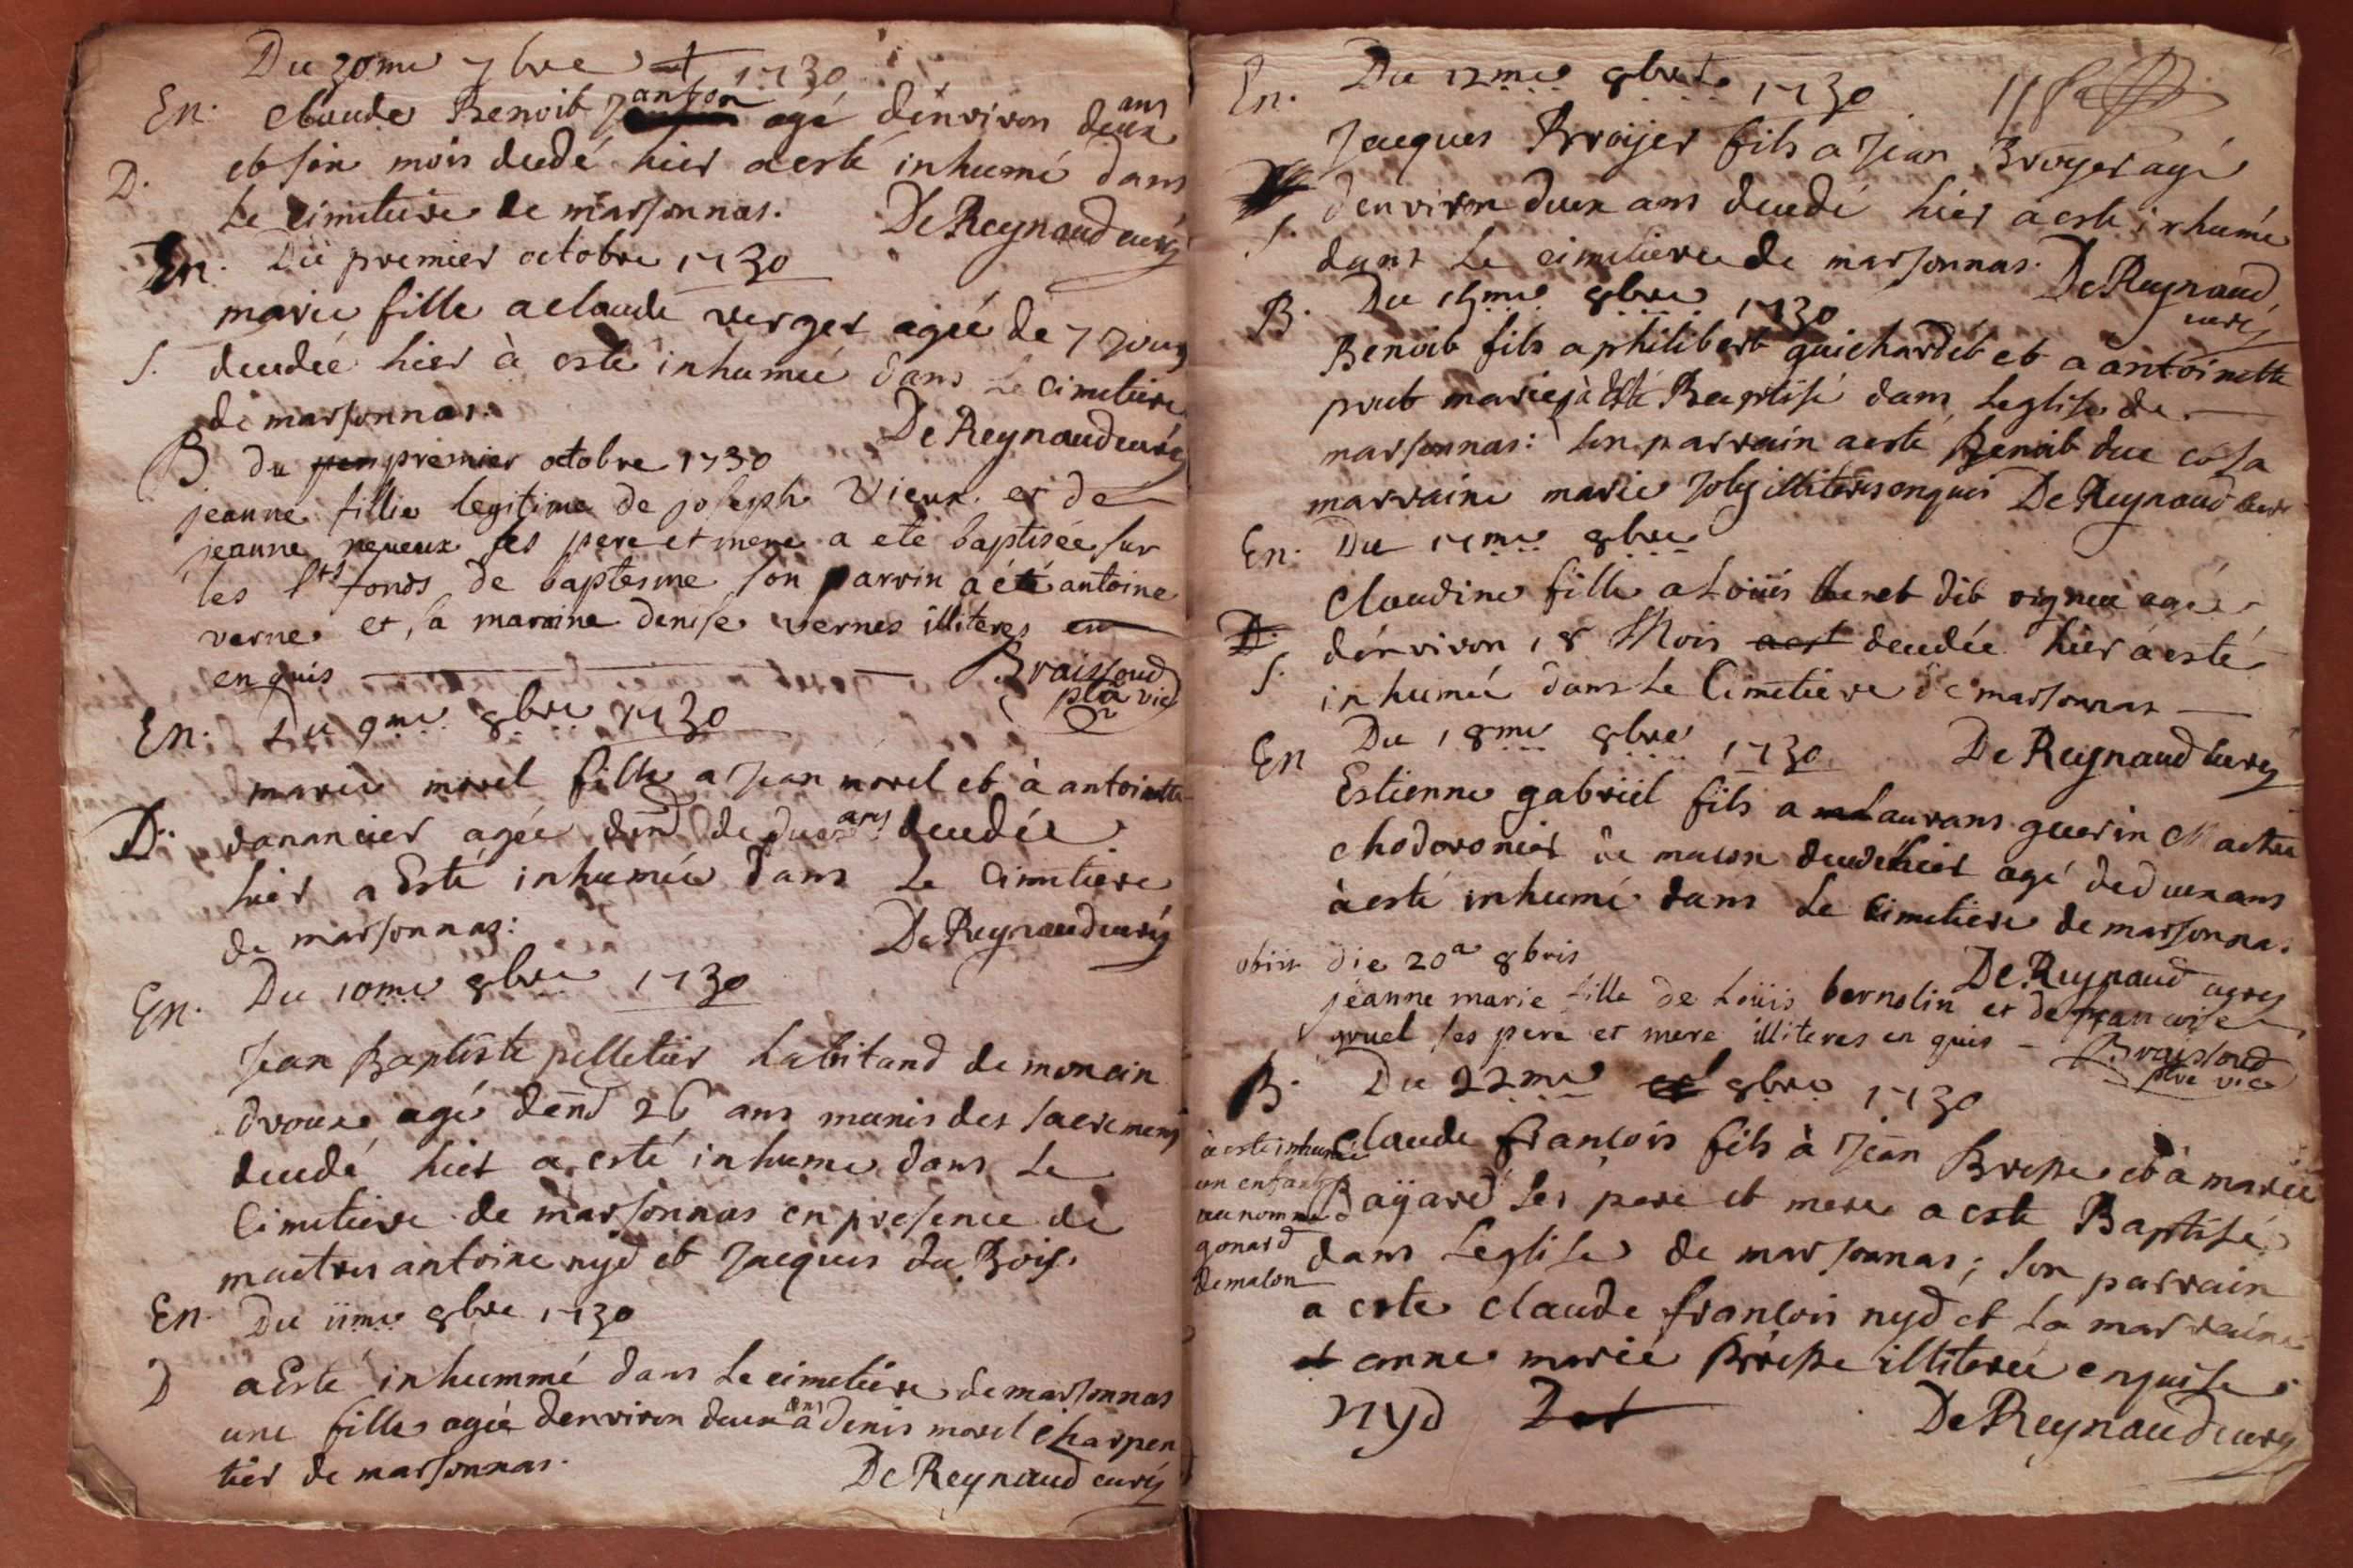 Du 30me 7bre 1730
En. Claude Benoit Janton agé d'environ deux ans
D. et six mois decedé hier a esté inhumé dans
le cimetiere de marsonnas. De Reynaud curé
En. Du premier octobre 1730
marie fille a claude verger agée de 7 jours
S. decedée hier à esté inhumée dans le cimetiere
de marsonnas. De Reynaud curé
B du premier octobre 1730
jeanne fillie legitime de joseph vieux et de
jeanne neveux ses pere et mere a eté baptisée sur
les sts fonds de baptesme son parrin a été antoine
verne et, sa maraine denise vernes illiteres en
enquis Braissoud
ptre vic
En. Du 9me 8bre 1730
marie morel fille a Jean morel et à antoinette
D. danancier agée denv de deux ans decedée
hier a Esté inhumée dans le Cimetiere
de marsonnas: De Reynaud curé
En. Du 10me 8bre 1730
Jean Baptiste pelletier habitand de
agé denv 26 ans munis des sacremens
decedé hier a esté inhume dans le
Cimetiere de marsonnas en presence de
maitres antoine nyd et Jacques du Bois.
En. Du 11me 8bre 1730
D a Esté inhummé dans le cimetiere de marsonnas
une filles agée denviron deux ans a denis morel charpen
tier de marsonnas. De Reynaud curé
En. Du 12me 8bre 1730
Jacques Broijer fils a Jean Broyer agé
d'environ deux ans decedé hier a esté inhumé
S. dans le cimetiere de marsonnas. De Reynaud
curé
B. Du 15me 8bre 1730
Benoit fils a philibert guichardet et a antoinette
prut mariés à Esté Baptisé dans leglise de
marsonnas: son parrain a esté Benoit duc et sa
marraine marie Joly illiteres enquis De Reynaud curé
En. Du 17me 8bre
Claudine fille a Loüis dit agée
D. d'environ 18 Mois decedée hier a esté
S. inhumée dans le Cimetiere de marsonnas
En Du 18me 8bre 1730 De Reynaud curé
Estienne gabriel fils a Laurans guerin Maitre
chodoronier de macon decedé hier agé de deux ans
à esté inhumé dans le cimetiere de marsonnas
De Reynaud curé
obiit die 20a 8bris
jeanne marie fille de Loüis bernolin et de francoise
gruel ses pere et mere illiteres en quis - Braissoud
ptre vic
B. Du 22me 8bre 1730
Claude françois fils à Jean Bresse et à marie
Baÿard ses pere et mere a esté Baptisé
dans Leglise de marsonnas; son parrain
a esté claude françois nyd et la marraine
anne marie Bresse illiterée enquise.
nyd De Reynaud curé
à esté inhumé
un enfant
au nommé
gonard
de malon